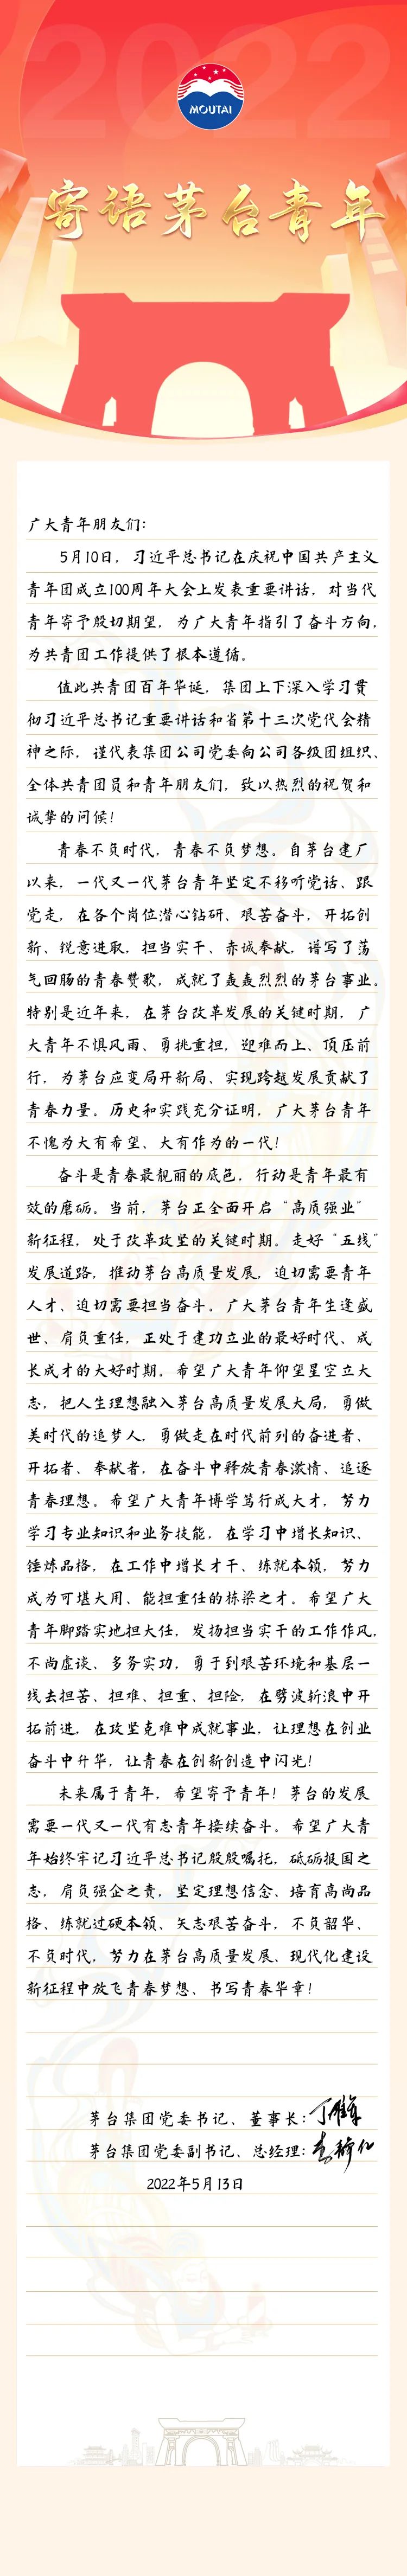 2022
MOUTAI
寄语茅台青年
广大青年朋友们：
5月10日，习近平总书记在庆祝中国共产主义
青年团成立100周年大会上发表重要讲话，对当代
青年寄予殷切期望，为广大青年指引了奋斗方向，
为共青团工作提供了根本遵循。
值此共青团百年华诞，集团上下深入学习贯
彻习近平总书记重要讲话和省第十三次党代会精
神之际，谨代表集团公司党委向公司各级团组织、
全体共青团员和青年朋友们，致以热烈的祝贺和
诚挚的问候！
青春不负时代，青春不负梦想。自茅台建厂
以来，一代又一代茅台青年坚定不移听党话、跟
党走，在各个岗位潜心钻研、艰苦奋斗，开拓创
新、锐意进取，担当实干、赤诚奉献，谱写了荡
气回肠的青春赞歌，成就了轰轰烈烈的茅台事业。
特别是近年来，在茅台改革发展的关键时期，广
大青年不惧风雨、勇挑重担，迎难而上、顶压前
行，为茅台应变局开新局、实现跨越发展贡献了
青春力量。历史和实践充分证明，广大茅台青年
不愧为大有希望、大有作为的一代！
奋斗是青春最靓丽的底色，行动是青年最有
效的磨砺。当前，茅台正全面开启“高质强业”
新征程，处于改革攻坚的关键时期。走好“五线”
发展道路，推动茅台高质量发展，迫切需要青年
人才、迫切需要担当奋斗。广大茅台青年生逢盛
世、肩负重任，正处于建功立业的最好时代、成
长成才的大好时期。希望广大青年仰望星空立大
志，把人生理想融入茅台高质量发展大局，勇做
美时代的追梦人，勇做走在时代前列的奋进者、
开拓者、奉献者，在奋斗中释放青春激情、追逐
青春理想。希望广大青年博学笃行成大才，努力
学习专业知识和业务技能，在学习中增长知识、
锤炼品格，在工作中增长才干、练就本领，努力
成为可堪大用、能担重任的栋梁之才。希望广大
青年脚踏实地担大任，发扬担当实干的工作作风，
不尚虚谈、多务实功，勇于到艰苦环境和基层一
线去担苦、担难、担重、担险，在劈波斩浪中开
拓前进，在攻坚克难中成就事业，让理想在创业
奋斗中升华，让青春在创新创造中闪光！
未来属于青年，希望寄予青年！茅台的发展
需要一代又一代有志青年接续奋斗。希望广大青
年始终牢记习近平总书记殷殷嘱托，砥砺报国之
志，肩负强企之责，坚定理想信念、培育高尚品
格、练就过硬本领、矢志艰苦奋斗，不负韶华、
不负时代，努力在茅台高质量发展、现代化建设
新征程中放飞青春梦想、书写青春华章！
茅台集团党委书记、董事长：丁雄军
茅台集团党委副书记、总经理：李静仁
2022年5月13日